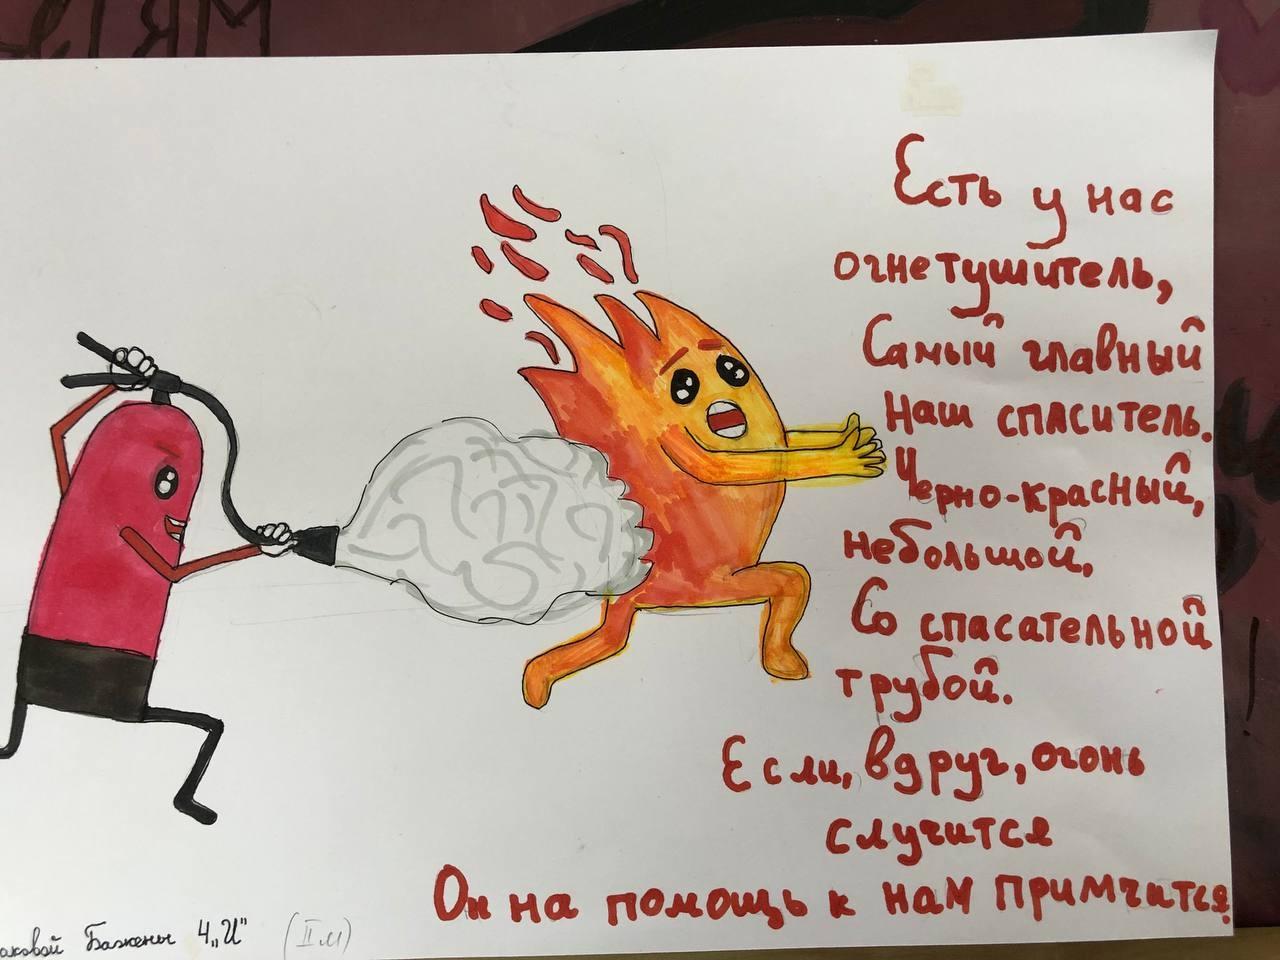 Есть у нас
огнетушитель,
Самый главный
наш спаситель.
Черно-красный,
небольшой,
Со спасательной
трубой.
Если, вдруг, огонь
случится
Он на помощь к нам примчится.
Бажены 4 „И" (II м)